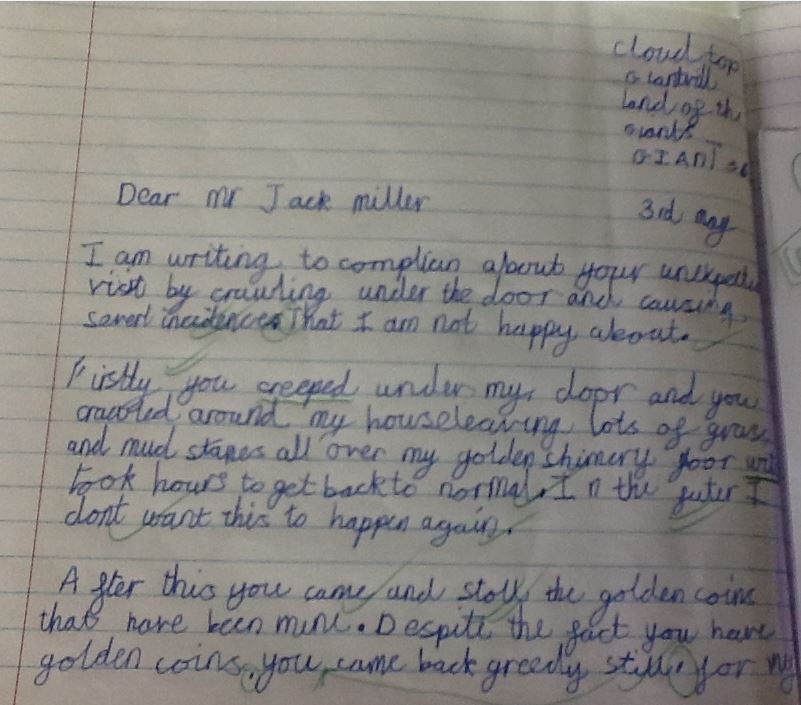 cloud top
Giantvill
Land of th
giants
GIANT
Dear Mr Jack miller
3rd may
I am writing to complian about your unexpecte
visit by crawling under the door and causing
severl incidences That I am not happy about.
Firstly you creeped under my door and you
crawled around my house leaving lots of grass
and mud stanes all over my golden shimery floor
took hours to get back to normal. In the futer I
dont want this to happen again.
After this you came and stoll the golden coins
that have been mine. Despite the fact you have
golden coins, you came back greedly still, for my